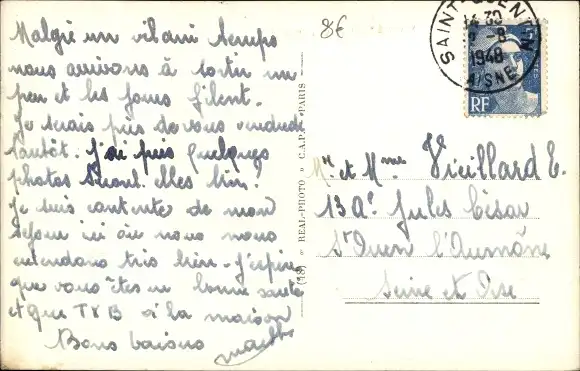 Malgré un vilain temps
nous arrivons à sortir un
peu et les jours filent.
Je serais près de vous vendredi
tantôt. J'ai pris quelques
photos seront elles bien!
Je suis contente de mon
séjour ici où nous nous
entendons très bien. J'espère
que vous êtes en bonne santé
et que TVB à la maison
Bons baisers
8€
SAINT-QUENTIN
1948
AISNE
RF
(18) » REAL-PHOTO » C.A.P. » PARIS
Mr et Mme Vieillard E.
13 Jules César
St Ouen l'Aumône
Seine et Oise